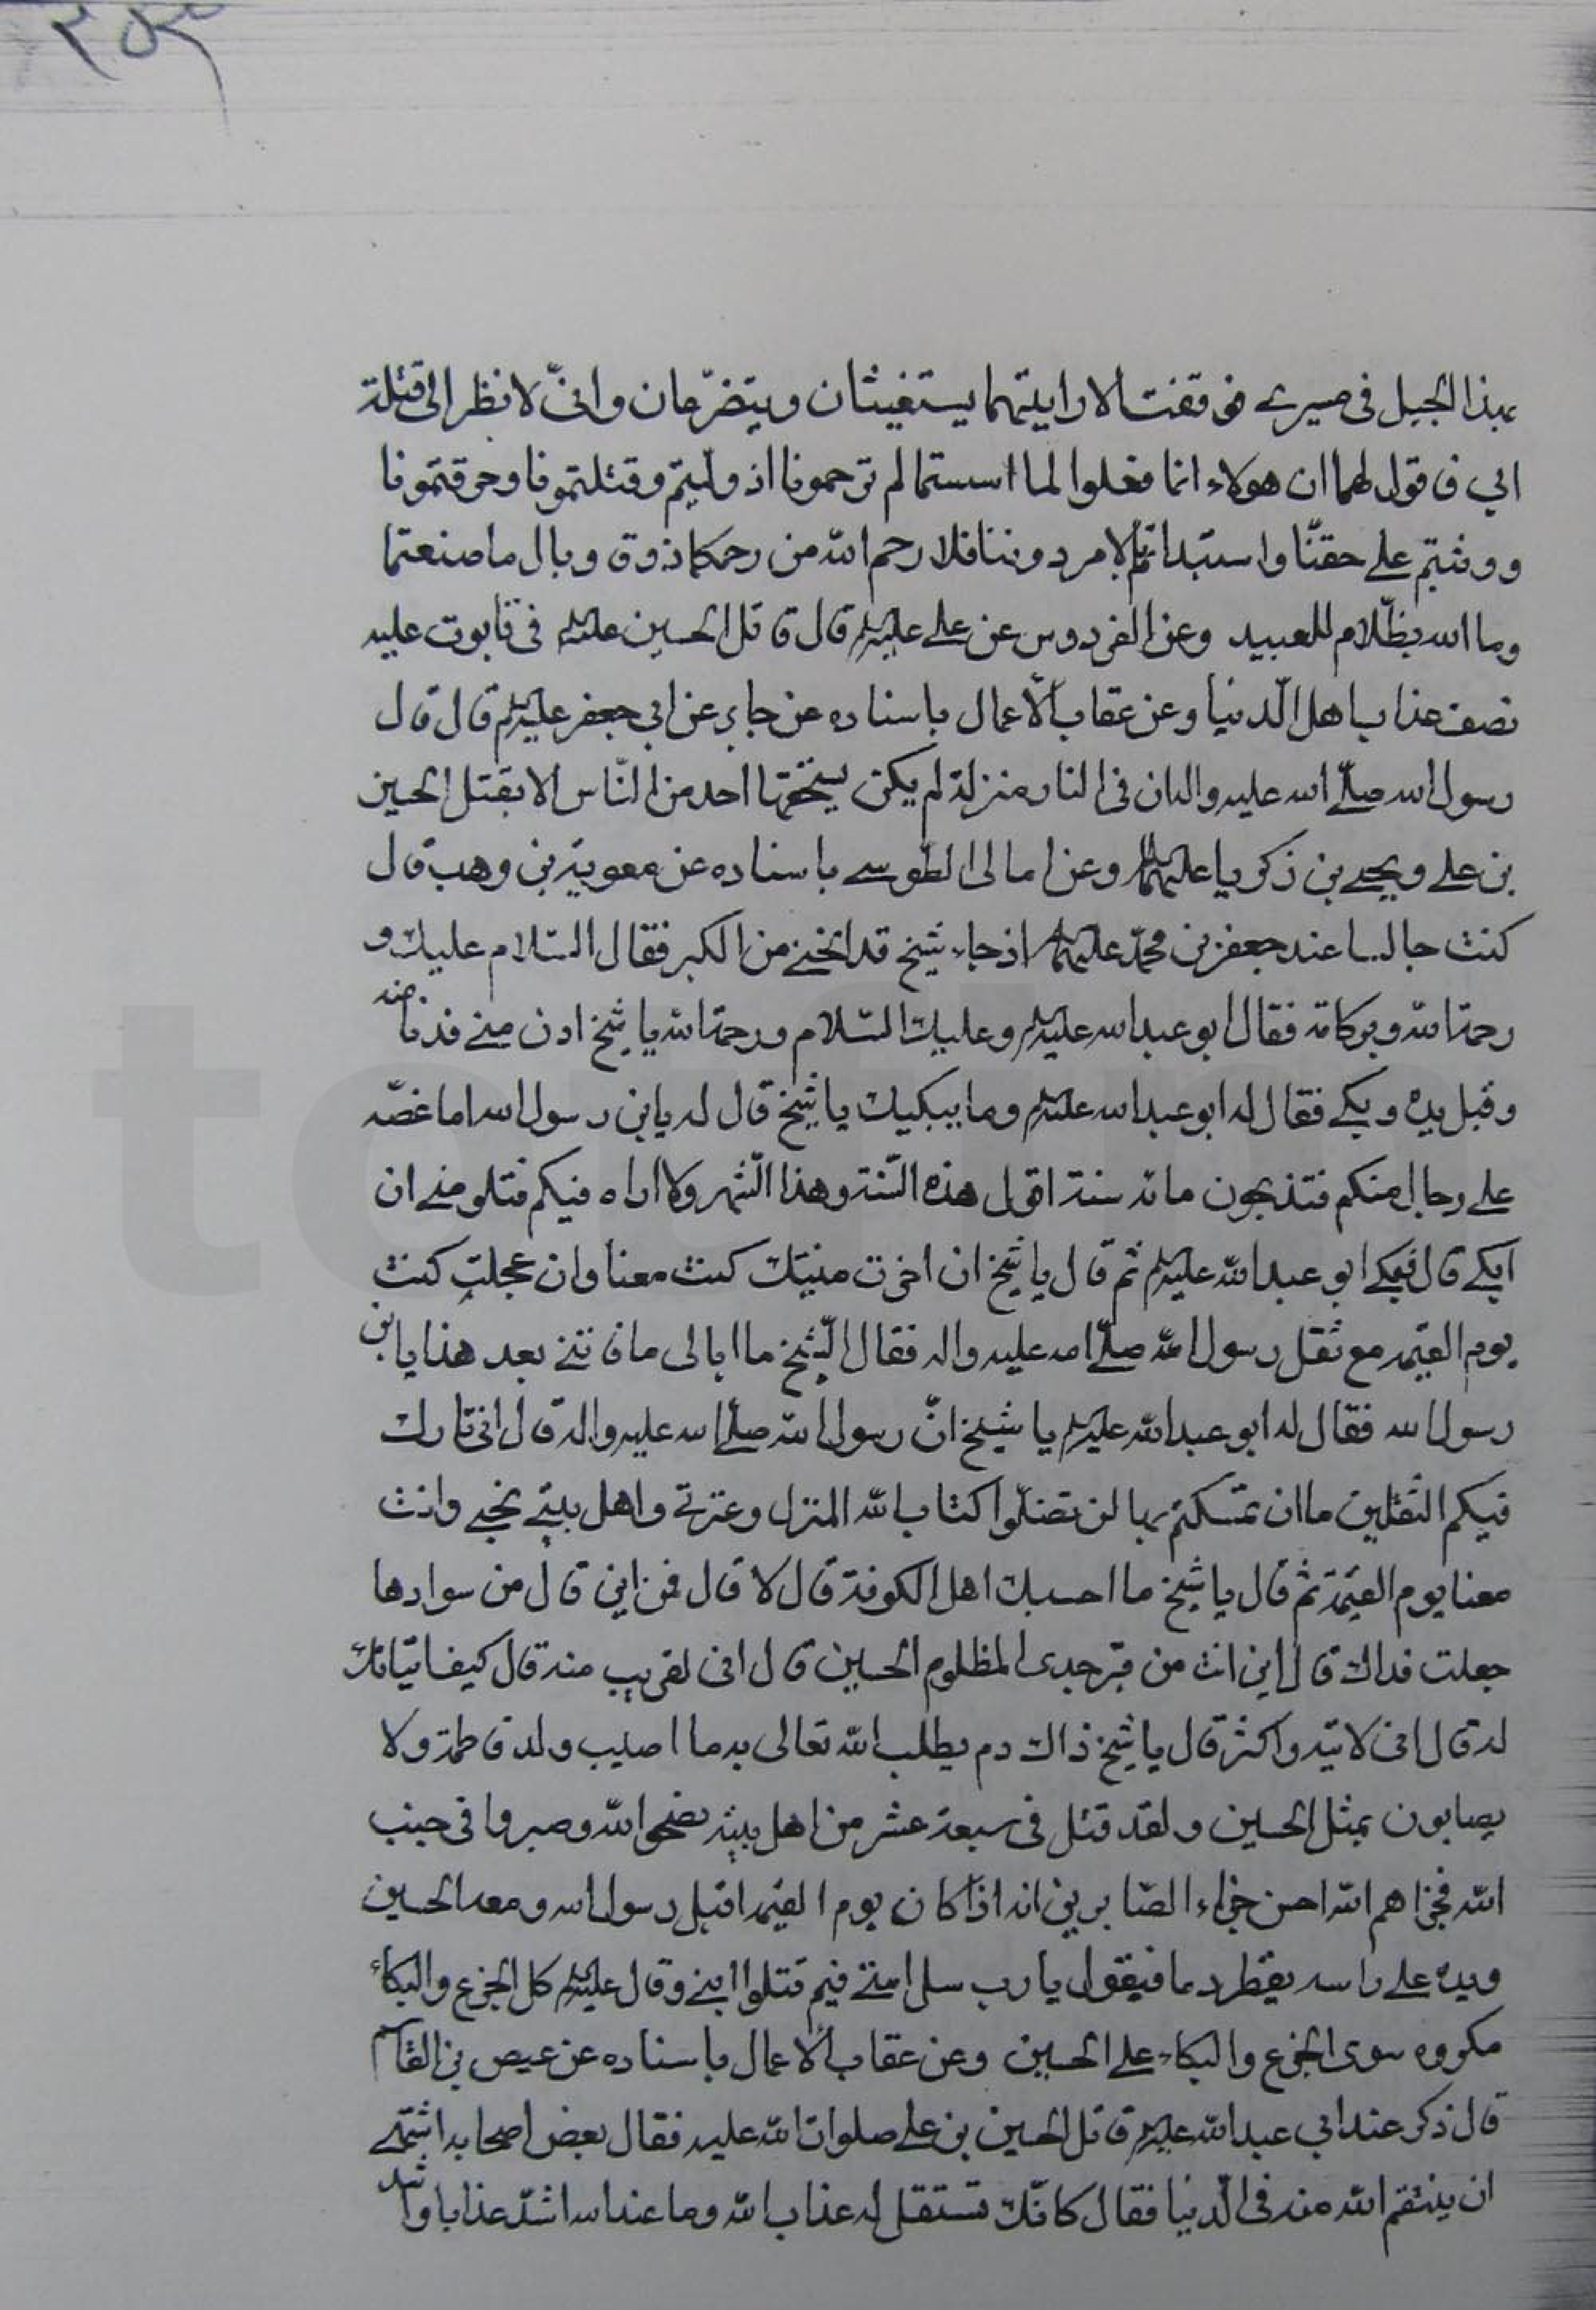 ٢٥٣
بهذا الجبل فى مسيرى فوقفت الا رايتهما يستغيثان ويتضرّعان وانّى لانظر الى قتلة
ابي فاقول لهما ان هولاء انما فعلوا لما اسستما لم ترحمونا اذ ولّيتم وقتلتمونا وحرقتمونا
ووثبتم على حقنّا واستبداتم بالامر دوننا فلا رحم الله من رحمكما ذوقا وبال ما صنعتما
وما الله بظّلام للعبيد وعن الفردوس عن على عليه‌السلم قال قاتل الحسين عليه‌السلم فى تابوت عليه
نصف عذاب اهل الّدنيا وعن عقاب الاعمال باسناده عن جابر عن ابي جعفر عليه‌السلم قال قال
رسول الله صلّى الله عليه واله ان فى النار منزلة لم يكن يستحقها احد من النّاس الا بقتل الحسين
بن على ويحيى بن زكريا عليهما‌السلم وعن امالى الطّوسى باسناده عن معوية بن وهب قال
كنت جالسا عند جعفر بن محمّد عليهما‌السلم اذ جاء شيخ قد انحنى من الكبر فقال السّلام عليك و
رحمة الله وبركاته فقال ابو عبد الله عليه‌السلم وعليك السّلام ورحمة الله يا شيخ ادن منى فدنا منه
وقبل يده وبكى فقال له ابو عبد الله عليه‌السلم وما يبكيك يا شيخ قال له يابن رسول الله اما غصّه
على رجال منكم فتذبحون مائه سنة اقول هذه السّنة وهذا الشّهر ولا اراه فيكم فتلومنى ان
ابكى قال فبكى ابو عبد الله عليه‌السلم ثم قال يا شيخ ان اخرت منيتك كنت معنا وان عجلت كنت
يوم القيمه مع ثقل رسول الله صلّى الله عليه واله فقال الّشيخ ما ابالى ما فاتنى بعد هذا يابن
رسول الله فقال له ابو عبد الله عليه‌السلم يا شيخ انّ رسول الله صلّى الله عليه واله قال انى تارك
فيكم الثقلين ما ان تمسكتم بهما لن تضلّوا كتاب الله المنزل وعترتى واهل بيتى نجيى وانت
معنا يوم القيمة ثم قال يا شيخ ما احسبك اهل الكوفة قال لا قال فمن اين قال من سوادها
جعلت فداك قال اين انت من قبر جدى المظلوم الحسين قال انى لقريب منه قال كيف اتيانك
له قال انى لاتيه واكثر قال يا شيخ ذاك دم يطلب الله تعالى به ما اصيب ولد فاطمة ولا
يصابون بمثل الحسين ولقد قتل فى سبعة عشر من اهل بيته نصحوا لله وصبروا فى جنب
الله فجزاهم الله احسن جزاء الصّابرين انه اذا كان يوم القيمه اقبل رسول الله ومعه الحسين
ويده على راسه يقطر دما فيقول يا رب سل امتى فيم قتلوا ابنى وقال عليه‌السلم كل الجزع والبكاء
مكروه سوى الجزع والبكاء على الحسين وعن عقاب الاعمال باسناده عن عيص بن القاسم
قال ذكر عند ابي عبد الله عليه‌السلم قاتل الحسين بن على صلوات الله عليه فقال بعض اصحابه اشتهى
ان ينتقم الله منه فى الّدنيا فقال كانّك تستقل له عذاب الله وما عند الله اشدّ عذابا واشد